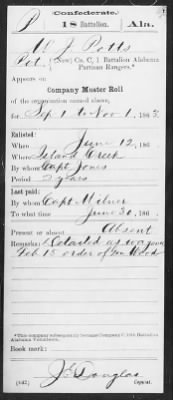 (Confederate.)
P 18 Battalion. Ala.
W J Potts
Pvt, (New) Co. C, 1 Battalion Alabama
Partisan Rangers.*
Appears on
Company Muster Roll
of the organization named above,
for Sep 1 to Nov 1, 1863.
Enlisted:
When June 12, 186
Where Island Creek
By whom Capt Jones
Period 3 years
Last paid:
By whom Capt Milner
To what time June 30, 186
Present or absent Absent
Remarks: Detailed as wagoner
Feb 15 order of Gen Wood
*This company subsequently became Company C, 18th Battalion
Alabama Volunteers.
Book mark:
J. Douglas
(642) Copyist.